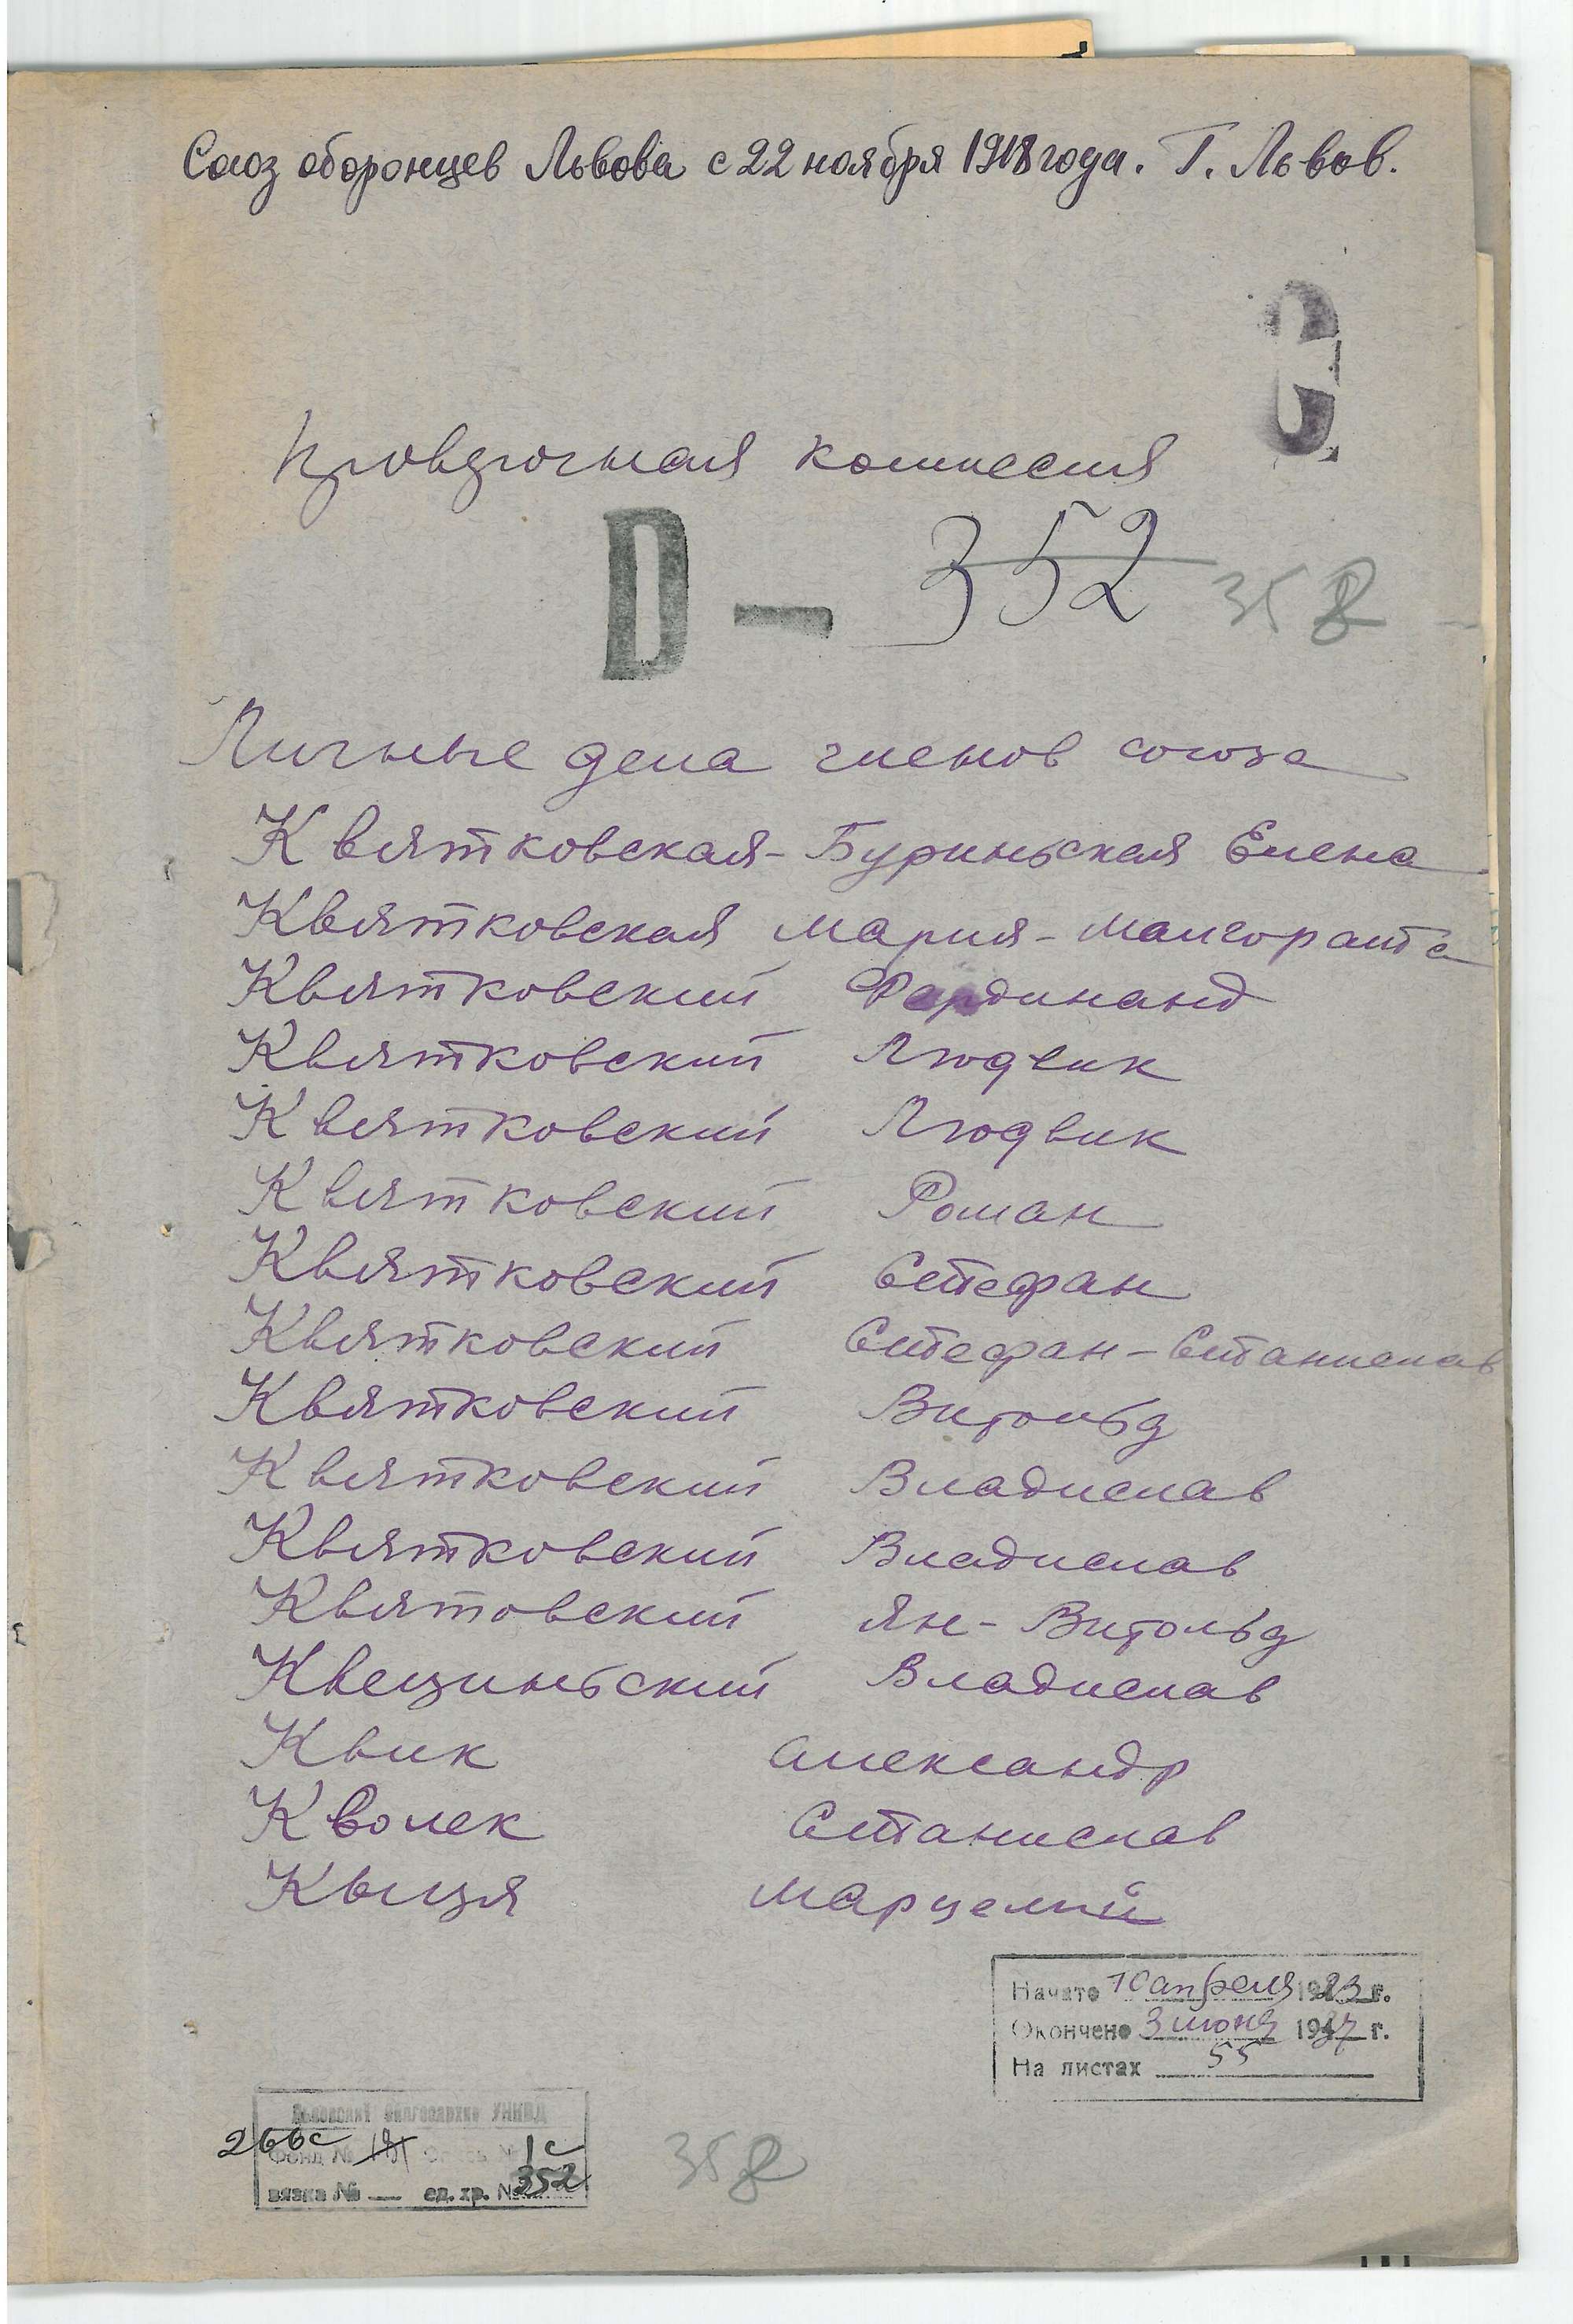 Союз оборонцев Львова с 22 ноября 1918 года. Г. Львов.
С
комиссия
D — 352 358
Личные дела членов союза
Квятковская-Буриньская Елена
Квятковская Мария-Малгората
Квятковский Фердинанд
Квятковский Людвик
Квятковский Людвик
Квятковский Роман
Квятковский Стефан
Квятковский Стефан-Станислав
Квятковский Витольд
Квятковский Владислав
Квятковский Владислав
Квятовский Ян-Витольд
Квециньский Владислав
Квик Александр
Кволек Станислав
Квиця Марцелий
Начато 10 апреля 1923 г.
Окончено 3 июня 1937 г.
На листах 55
Львовский Облгосархив УНКВД
266с Фонд № 181 Опись № 1с
вязка № — ед. хр. № 352
358